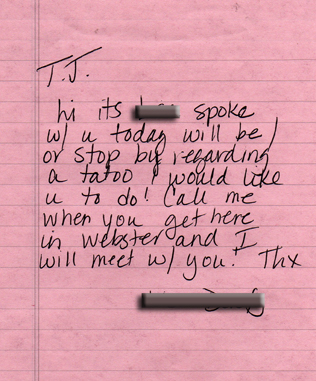 T.J.
hi its spoke
w/ u today will be
or stop by regarding
a tatoo I would like
u to do! Call me
when you get here
in webster and I
will meet w/ you! Thx